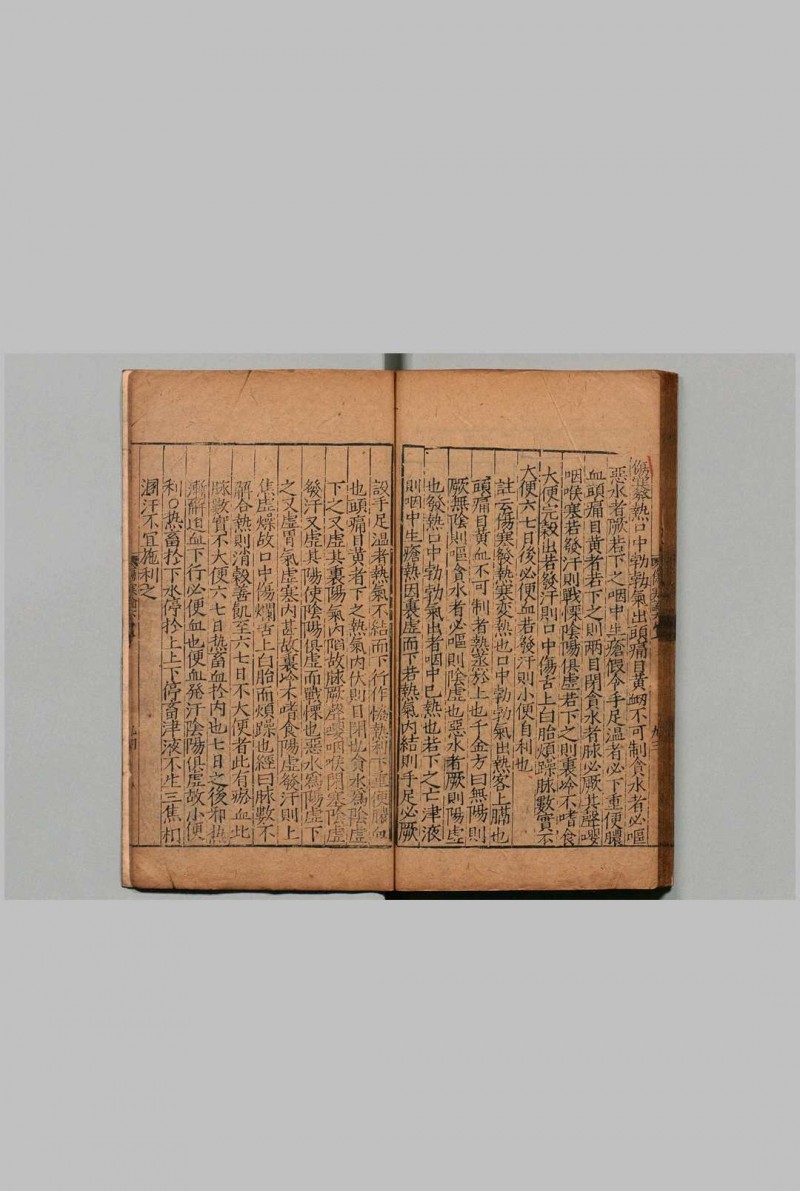 傷寒發熱口中勃勃氣出頭痛目黃衂不可制貪水者必嘔
惡水者厥若下之咽中生瘡假令手足溫者必下重便膿
血頭痛目黃者若下之則兩目閉貪水者脉必厥其聲嚶
咽喉塞若發汗則戰慄陰陽俱虛若下之則裏冷不嗜食
大便完糓出若發汗則口中傷舌上白胎煩躁脉數實不
大便六七日後必便血若發汗則小便自利也
註云傷寒發熱寒変熱也口中勃勃氣出熱客上膈也
頭痛目黃血不可制者熱蒸於上也千金方曰無陽則
厥無陰則嘔貪水者必嘔則陰虛也惡水者厥則陽虛
也發熱口中勃勃氣出者咽中已熱也若下之亡津液
則咽中生瘡熱因裏虛而下若熱氣内結則手足必厥
設手足溫者熱氣不結而下行作恊熱利下重便膿血
也頭痛目黃者下之熱氣内伏則目閉也貪水爲陰虛
下之又虛其裏陽氣内陷故脉厥聲嚶咽喉閉塞陰虛
發汗又虛其陽使陰陽俱虛而戰慄也惡水爲陽虛下
之又虛胃氣虛寒内甚故裏冷不嗜食陽虛發汗則上
焦虛燥故口中傷爛舌上白胎而煩躁也經曰脉數不
解合熱則消糓善飢至六七日不大便者此有瘀血此
脉數實不大便六七日熱畜血於内也七日之後邪熱
漸解迫血下行必便血也便血發汗陰陽俱虛故小便
利〇熱畜於下水停於上上下停畜津液不生三焦相
溷汗不宜施利之